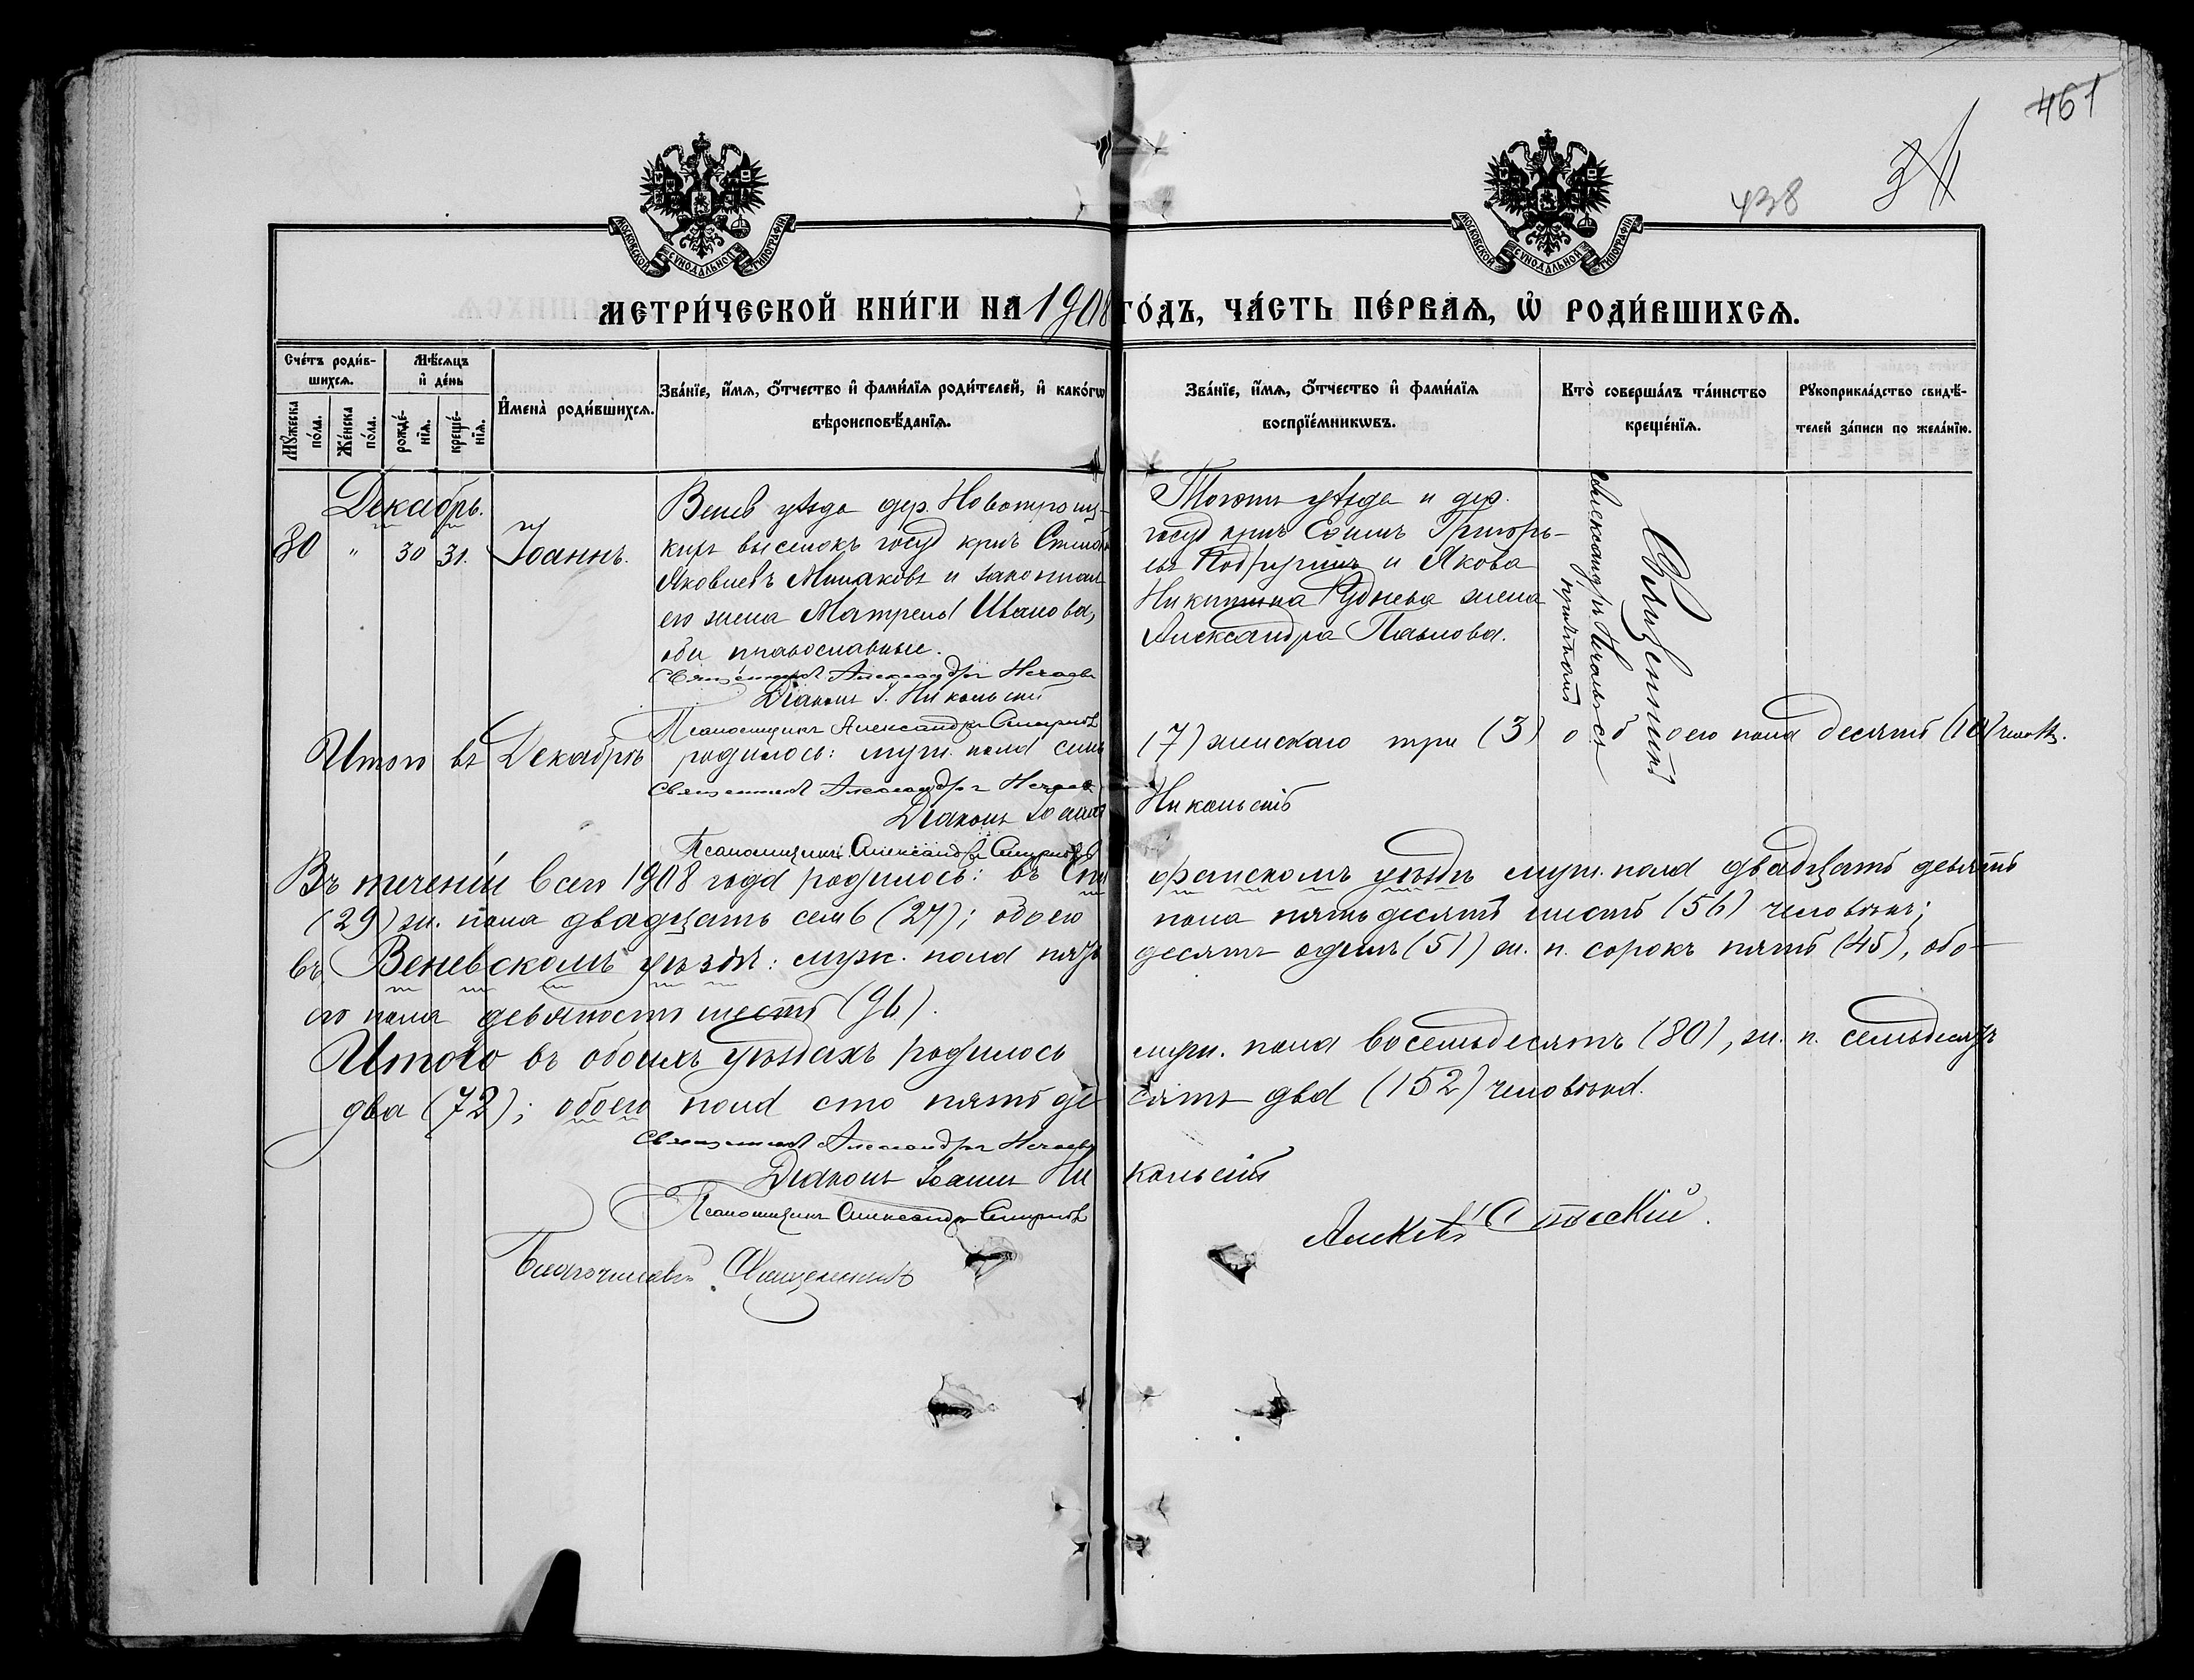 461
438
МОСКОВСКОЙ СѴНОДАЛЬНОЙ ТИПОГРАФІИ
МОСКОВСКОЙ СѴНОДАЛЬНОЙ ТИПОГРАФІИ
МЕТРИ́ЧЕСКОЙ КНИ́ГИ НА 1908 ГО́ДЪ, ЧА́СТЬ ПЕ́РВАѦ, Ѽ РОДИ́ВШИХСѦ.
Сче́тъ роди́в-
шихсѧ.
Мѣ́сѧцъ
и҆ де́нь
Мꙋ́жеска
по́ла.
Же́нска
по́ла.
рожде́-
нїѧ.
креще́-
нїѧ.
И҆мена̀ роди́вшихсѧ.
Зва́нїе, и҆́мѧ, ѻ҆́тчество и҆ фами́лїѧ роди́телей, и҆ како́гѡ
вѣроисповѣ́данїѧ.
Зва́нїе, и҆́мѧ, ѻ҆́тчество и҆ фами́лїѧ
воспрїе́мникѡвъ.
Кто̀ соверша́лъ та́инство
креще́нїѧ.
Рꙋкоприкла́дство свидѣ́-
телей за́писи по жела́нїю.
Декабрь.
30 " 30 31. Іоаннъ.
Венев уѣзда дер. Новотроиц-
кихъ выселокъ госуд крнъ
Яковлевъ Минаковъ и законная
его жена Матрена Иванова,
оба православные.
Священникъ Александръ Нечаевъ
Діаконъ І. Никольскій
Псаломщикъ Александръ Смирновъ
Тогоже уѣзда и дер.
госуд крнъ Григорь-
евъ и Якова
Никитина Руднева жена
Александра Павлова.
Священникъ
Александръ Нечаевъ съ
причтомъ
Итого въ Декабрѣ родилось: муж. пола семь (7) женскаго три (3) обоего пола десять (10) человѣк.
Священникъ Александръ Нечаевъ
Діаконъ Іоаннъ Никольскій
Псаломщикъ Александръ Смирновъ
Въ теченіи всего 1908 года родилось: въ Епифанскомъ уѣздѣ муж. пола двадцать девять
(29) ж. пола двадцать семь (27); обоего пола пятьдесятъ шесть (56) человѣкъ;
въ Веневскомъ уѣздѣ: муж. пола пятьдесятъ одинъ (51) ж. п. сорокъ пять (45), обо-
его пола девяносто шесть (96).
Итого въ обоихъ уѣздахъ родилось муж. пола восемьдесятъ (80), ж. п. семьдесятъ
два (72); обоего пола сто пятьдесятъ два (152) человѣка.
Священникъ Александръ Нечаевъ
Діаконъ Іоаннъ Никольскій
Псаломщикъ Александръ Смирновъ
Благочинный Священникъ Алексѣй Спасскій.